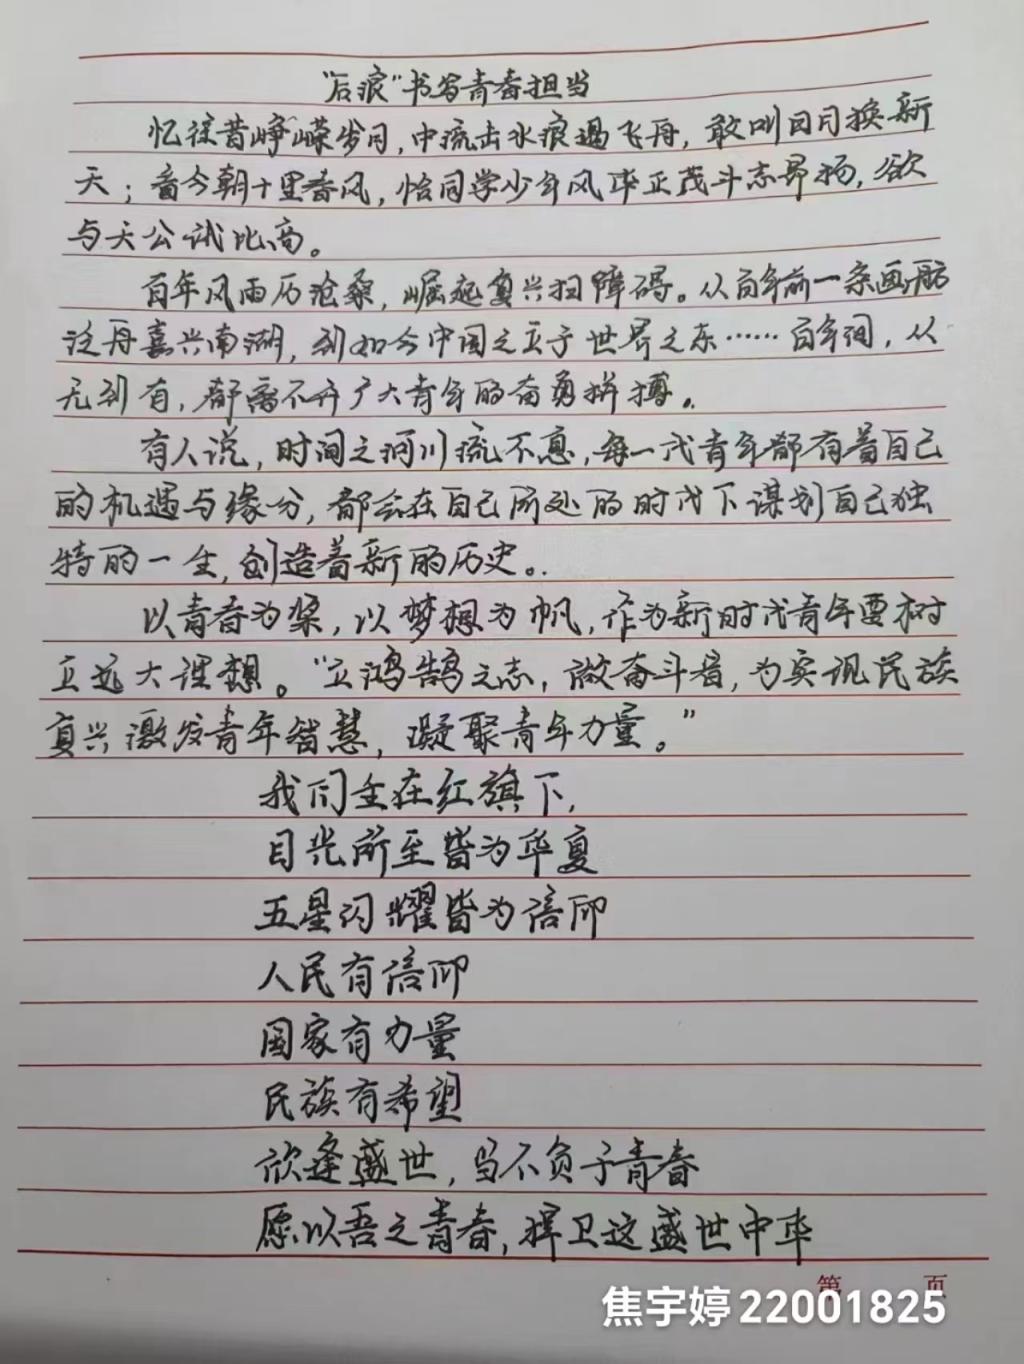 “后浪”书写青春担当
忆往昔峥嵘岁月，中流击水浪遏飞舟，敢叫日月换新
天；看今朝十里春风，恰同学少年风华正茂斗志昂扬，欲
与天公试比高。
百年风雨历沧桑，崛起复兴扫障碍。从百年前一条画舫
泛舟嘉兴南湖，到如今中国立于世界之东……百年间，从
无到有，都离不开广大青年的奋勇拼搏。
有人说，时间之河川流不息，每一代青年都有着自己
的机遇与缘分，都会在自己所处的时代下谋划自己独
特的一生，创造着新的历史。
以青春为桨，以梦想为帆，作为新时代青年要树
立远大理想。“立鸿鹄之志，做奋斗者，为实现民族
复兴激发青年智慧，凝聚青年力量。”
我们生在红旗下，
目光所至皆为华夏
五星闪耀皆为信仰
人民有信仰
国家有力量
民族有希望
欣逢盛世，当不负于青春
愿以吾之青春，捍卫这盛世中华
第 页
焦宇婷22001825